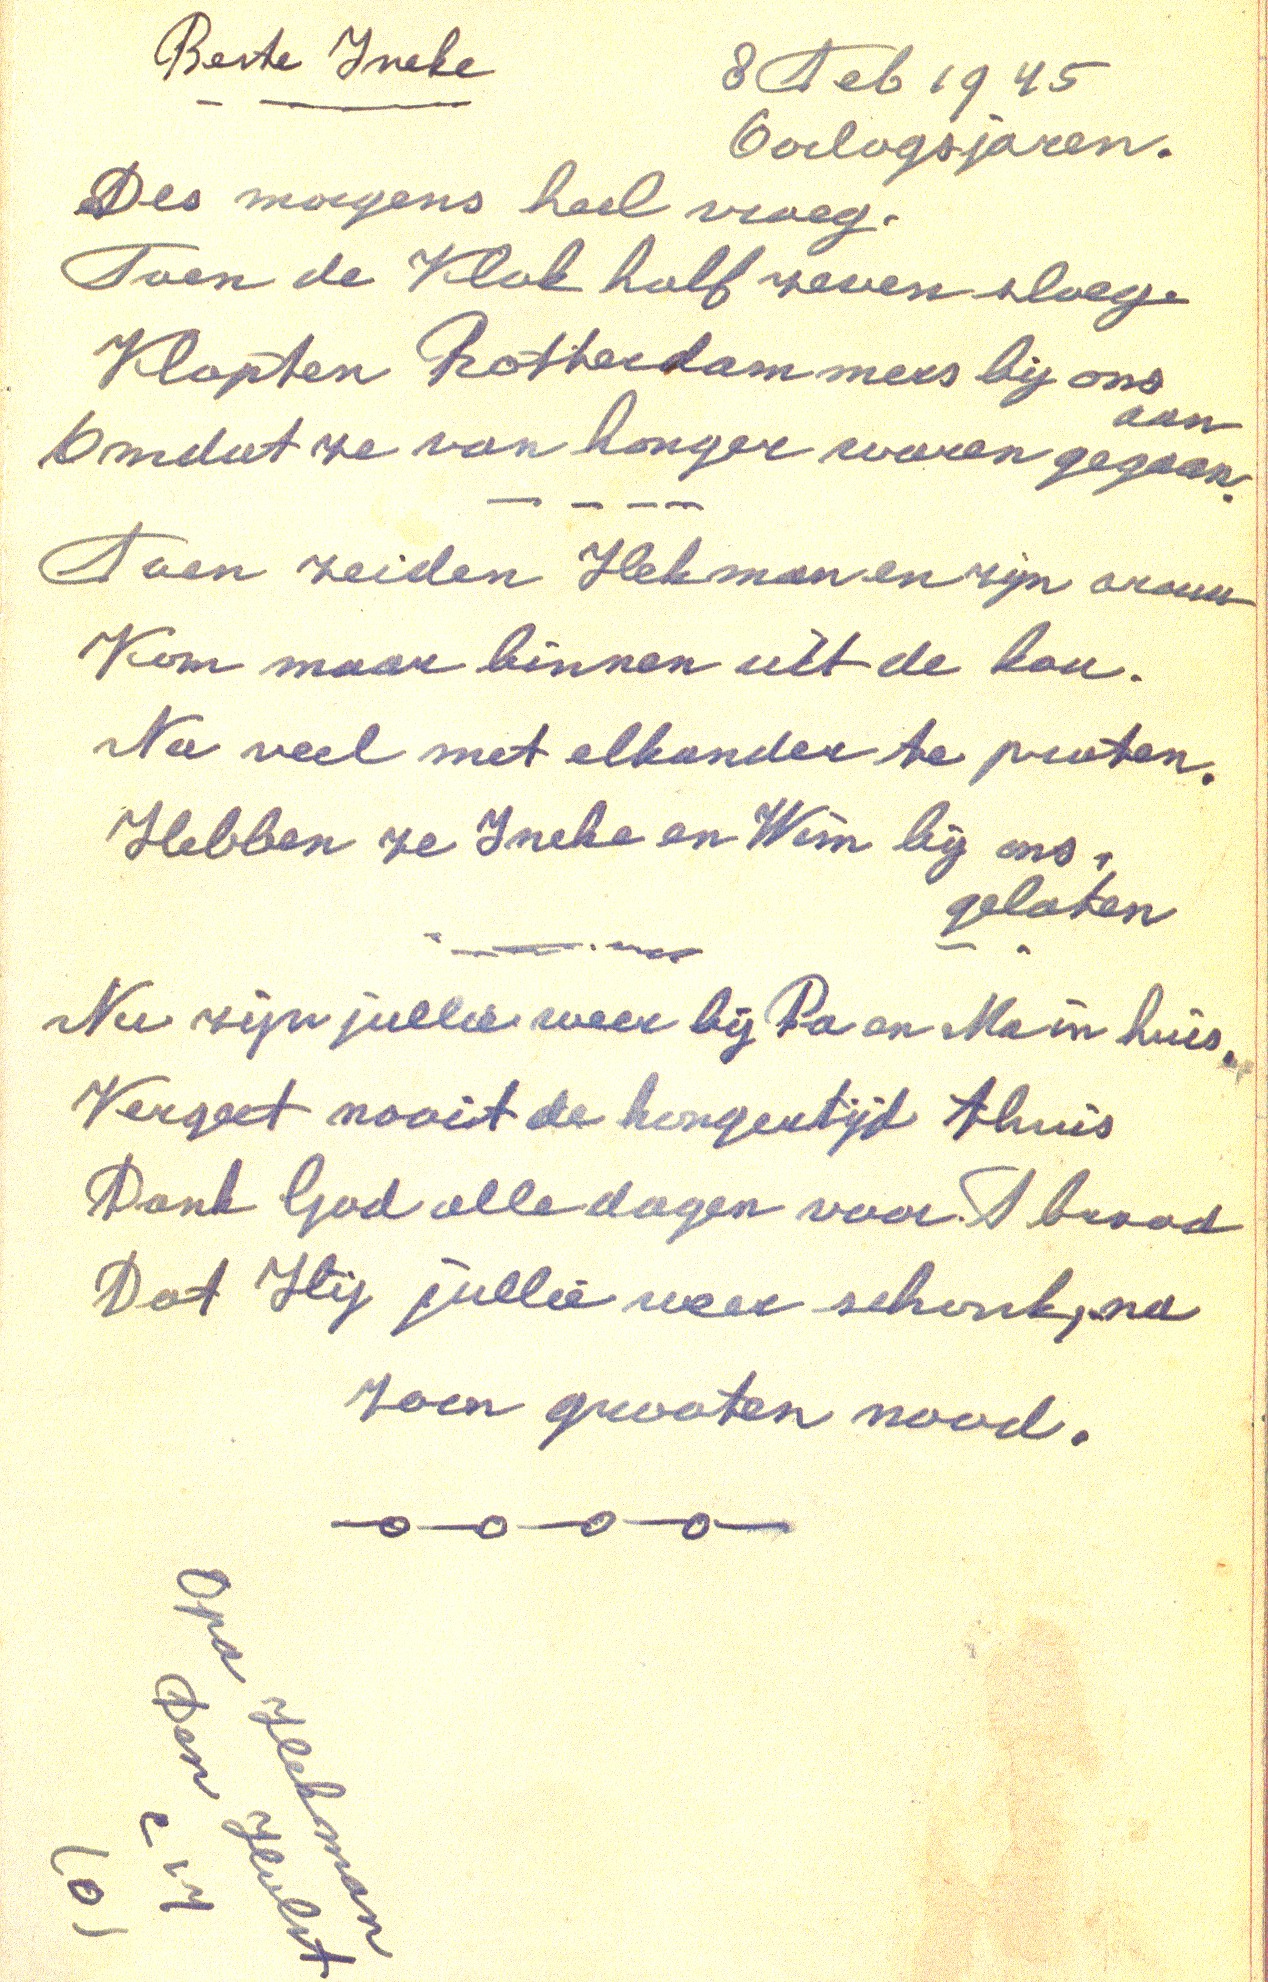 Beste Ineke
8 Feb 1945
Oorlogsjaren.
Des morgens heel vroeg.
Toen de Klok half zeven sloeg.
Klopten Rotterdammers bij ons
aan
Omdat ze van honger waren gegaan.
Toen zeiden Hekman en zijn vrouw
Kom maar binnen uit de kou.
Na veel met elkander te praten.
Hebben ze Ineke en Wim bij ons,
gelaten
Nu zijn jullie weer bij Pa en Ma in huis.
Vergeet nooit de hongertijd thuis
Dank God alle dagen voor T brood
Dat Hij jullie weer schonk, na
zoon grooten nood.
Opa Hekman
Den Hulst
(O)